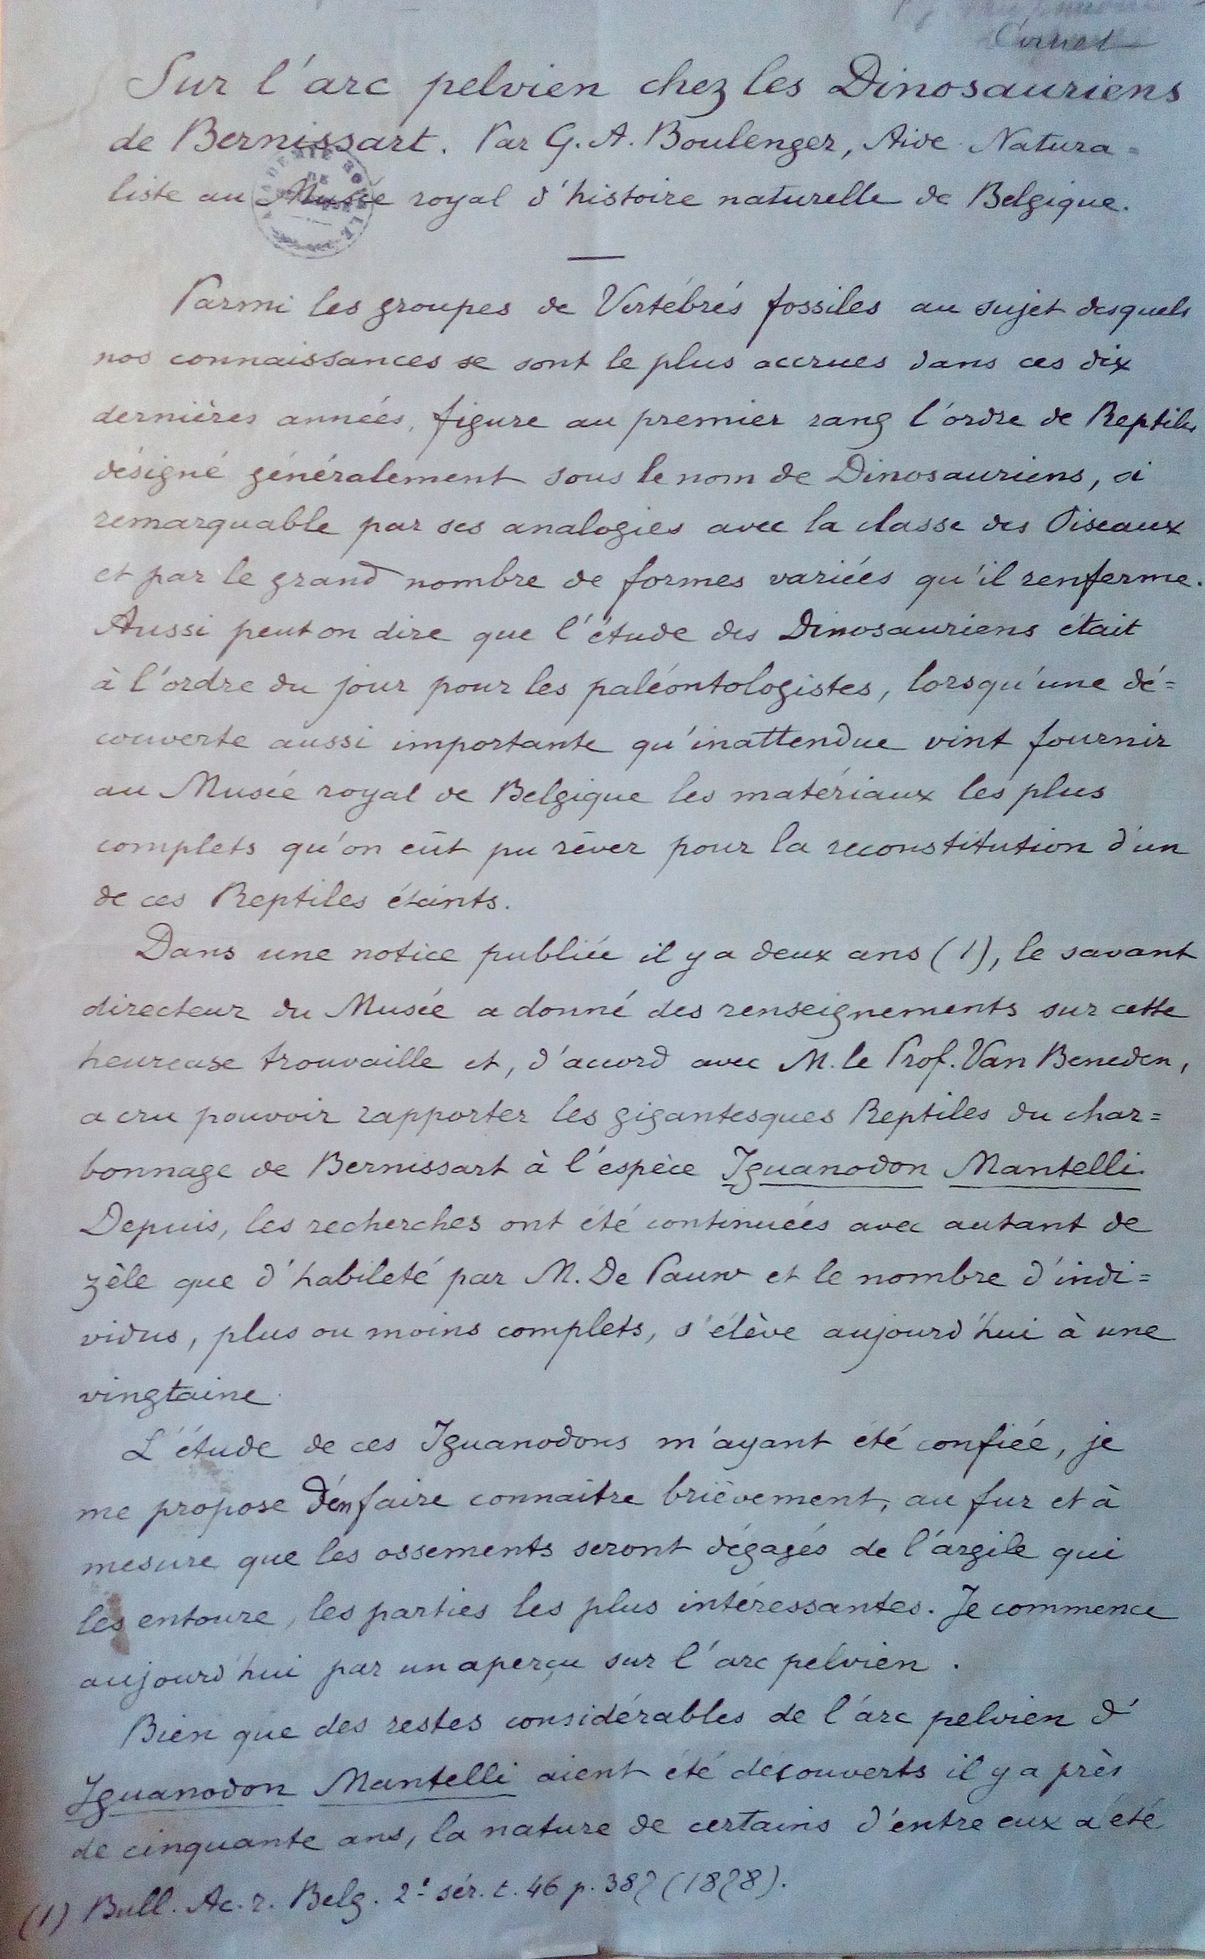 Cornet
Sur l'arc pelvien chez les Dinosauriens
de Bernissart. Par G. A. Boulenger, Aide Natura=
liste au Musée royal d'histoire naturelle de Belgique.
Parmi les groupes de Vertébrés fossiles au sujet desquels
nos connaissances se sont le plus accrues dans ces dix
dernières années, figure au premier rang l'ordre de Reptiles
désigné généralement sous le nom de Dinosauriens, si
remarquable par ses analogies avec la classe des Oiseaux
et par le grand nombre de formes variées qu'il renferme.
Aussi peut on dire que l'étude des Dinosauriens était
à l'ordre du jour pour les paléontologistes, lorsqu'une dé=
couverte aussi importante qu'inattendue vint fournir
au Musée royal de Belgique les matériaux les plus
complets qu'on eût pu rêver pour la reconstitution d'un
de ces Reptiles éteints.
Dans une notice publiée il y a deux ans (1), le savant
directeur du Musée a donné des renseignements sur cette
heureuse trouvaille et, d'accord avec M. le Prof. Van Beneden,
a cru pouvoir rapporter les gigantesques Reptiles du char=
bonnage de Bernissart à l'espèce Iguanodon Mantelli.
Depuis, les recherches ont été continuées avec autant de
zèle que d'habileté par M. De Pauw et le nombre d'indi=
vidus, plus ou moins complets, s'élève aujourd'hui à une
vingtaine.
L'étude de ces Iguanodons m'ayant été confiée, je
me propose d'en faire connaître brièvement, au fur et à
mesure que les ossements seront dégagés de l'argile qui
les entoure, les parties les plus intéressantes. Je commence
aujourd'hui par un aperçu sur l'arc pelvien.
Bien que des restes considérables de l'arc pelvien d'
Iguanodon Mantelli aient été découverts il y a près
de cinquante ans, la nature de certains d'entre eux a été
(1) Bull. Ac. r. Belg. 2e sér. t. 46 p. 387 (1878).